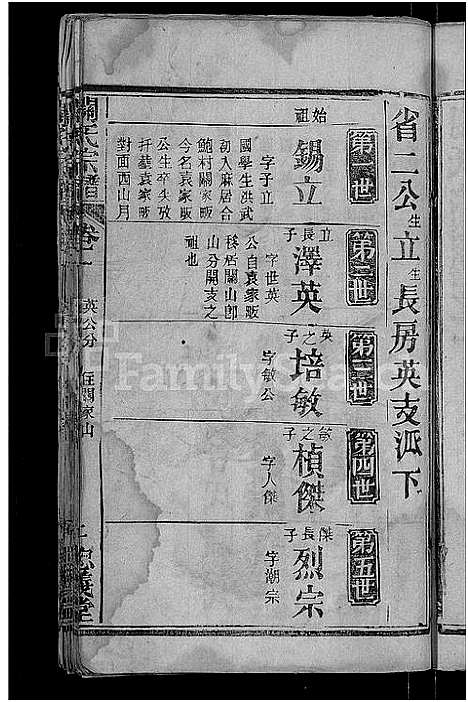 省二公生立生長房英支派下
第一世
始祖
錫立
字子立
國學生洪武
初入麻居合
鮑村關家畈
今名袁家畈
公生卒失攷
扦墓袁家畈
對面西山月
第二世
立長子
澤英
字世英
公自袁家畈
移居關山即
山分開支之
祖也
第三世
英之子
培敏
字敏公
第四世
敏之子
楨傑
字人傑
第五世
傑長子
烈宗
字潮宗
關氏宗譜
卷一
英公分 住關家山
忠義堂
Family